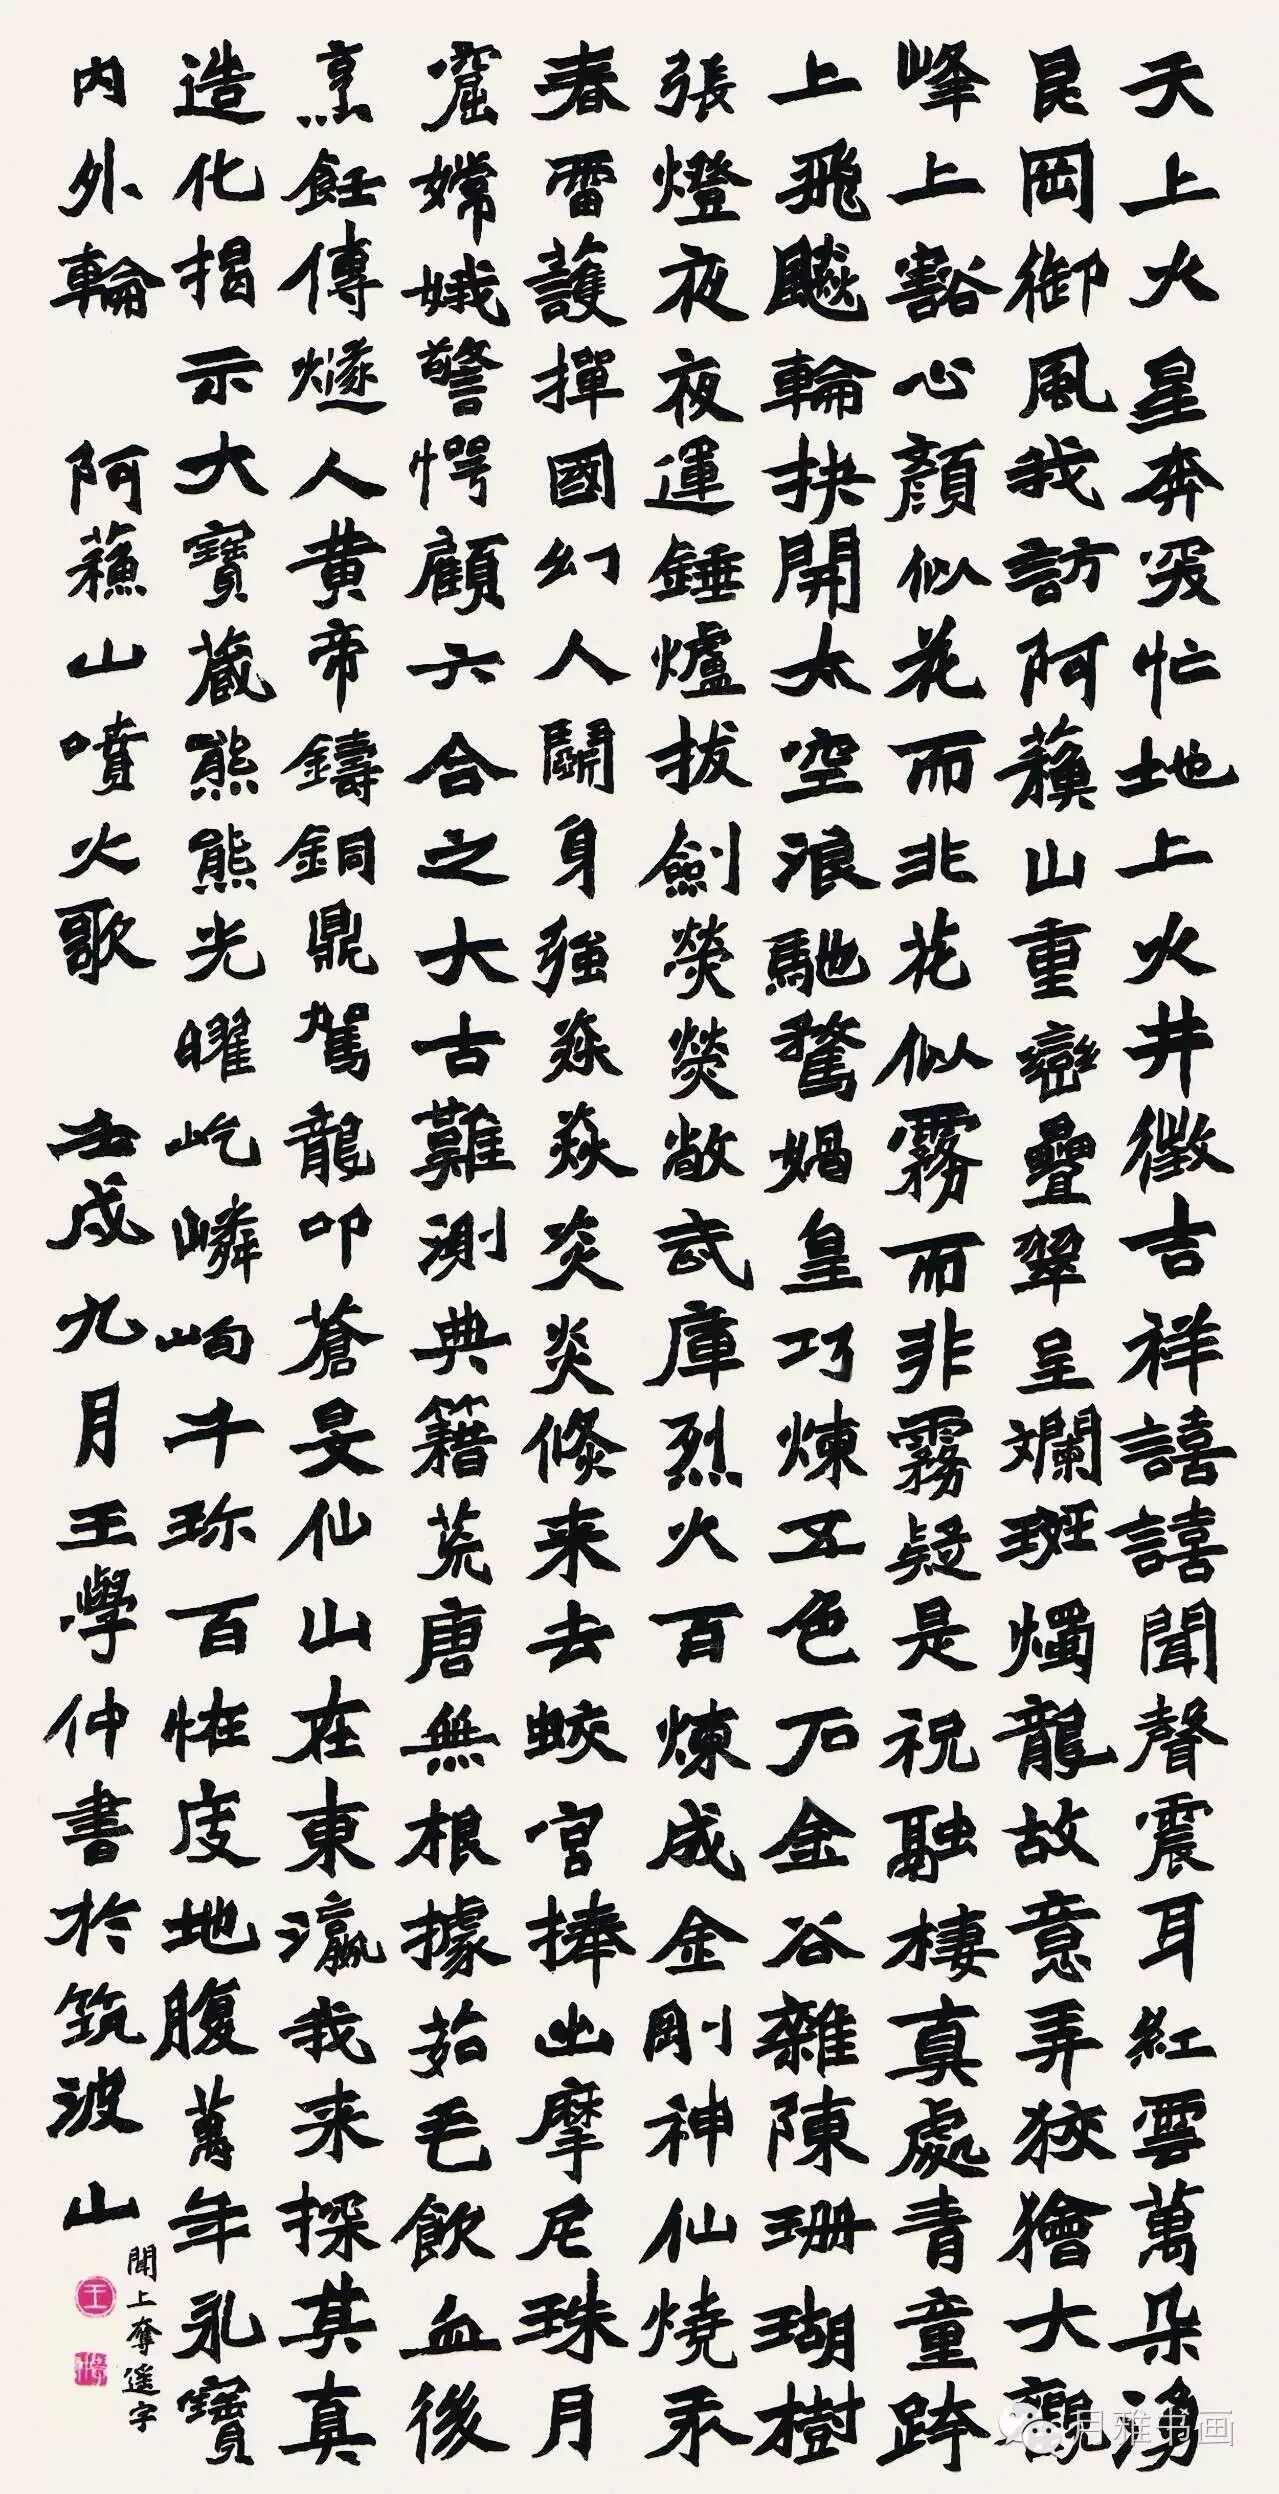 天上火星奔突忙地上火井徵吉祥譆譆聞聲震耳紅雲萬朵湧
昆岡御風我訪阿蘇山重巒疊翠呈斕斑燭龍故意弄狡獪大觀
峰上豁心顏似花而非花似霧而非霧疑是祝融棲真處青童跨
上飛飈輪抉開太空浪馳騖媧皇巧煉五色石金谷雜陳珊瑚樹
張燈夜夜運錘爐拔劍熒熒敞武庫烈火百煉成金剛神仙燒汞
春雷護撣國幻人鬭身強焱焱炎炎倏来去蛟宮捧出摩尼珠月
窟嫦娥警愕顧六合之大古難測典籍荒唐無根據茹毛飲血後
烹飪傳燧人黃帝鑄銅鼎駕龍叩蒼旻仙山在東瀛我来探其真
造化揭示大寶藏熊熊光曜屹嶙峋千珍百怪庋地腹萬年永寶
内外輪 阿蘇山噴火歌 壬戌九月王學仲書於筑波山
聞上奪遥字
月雅书画